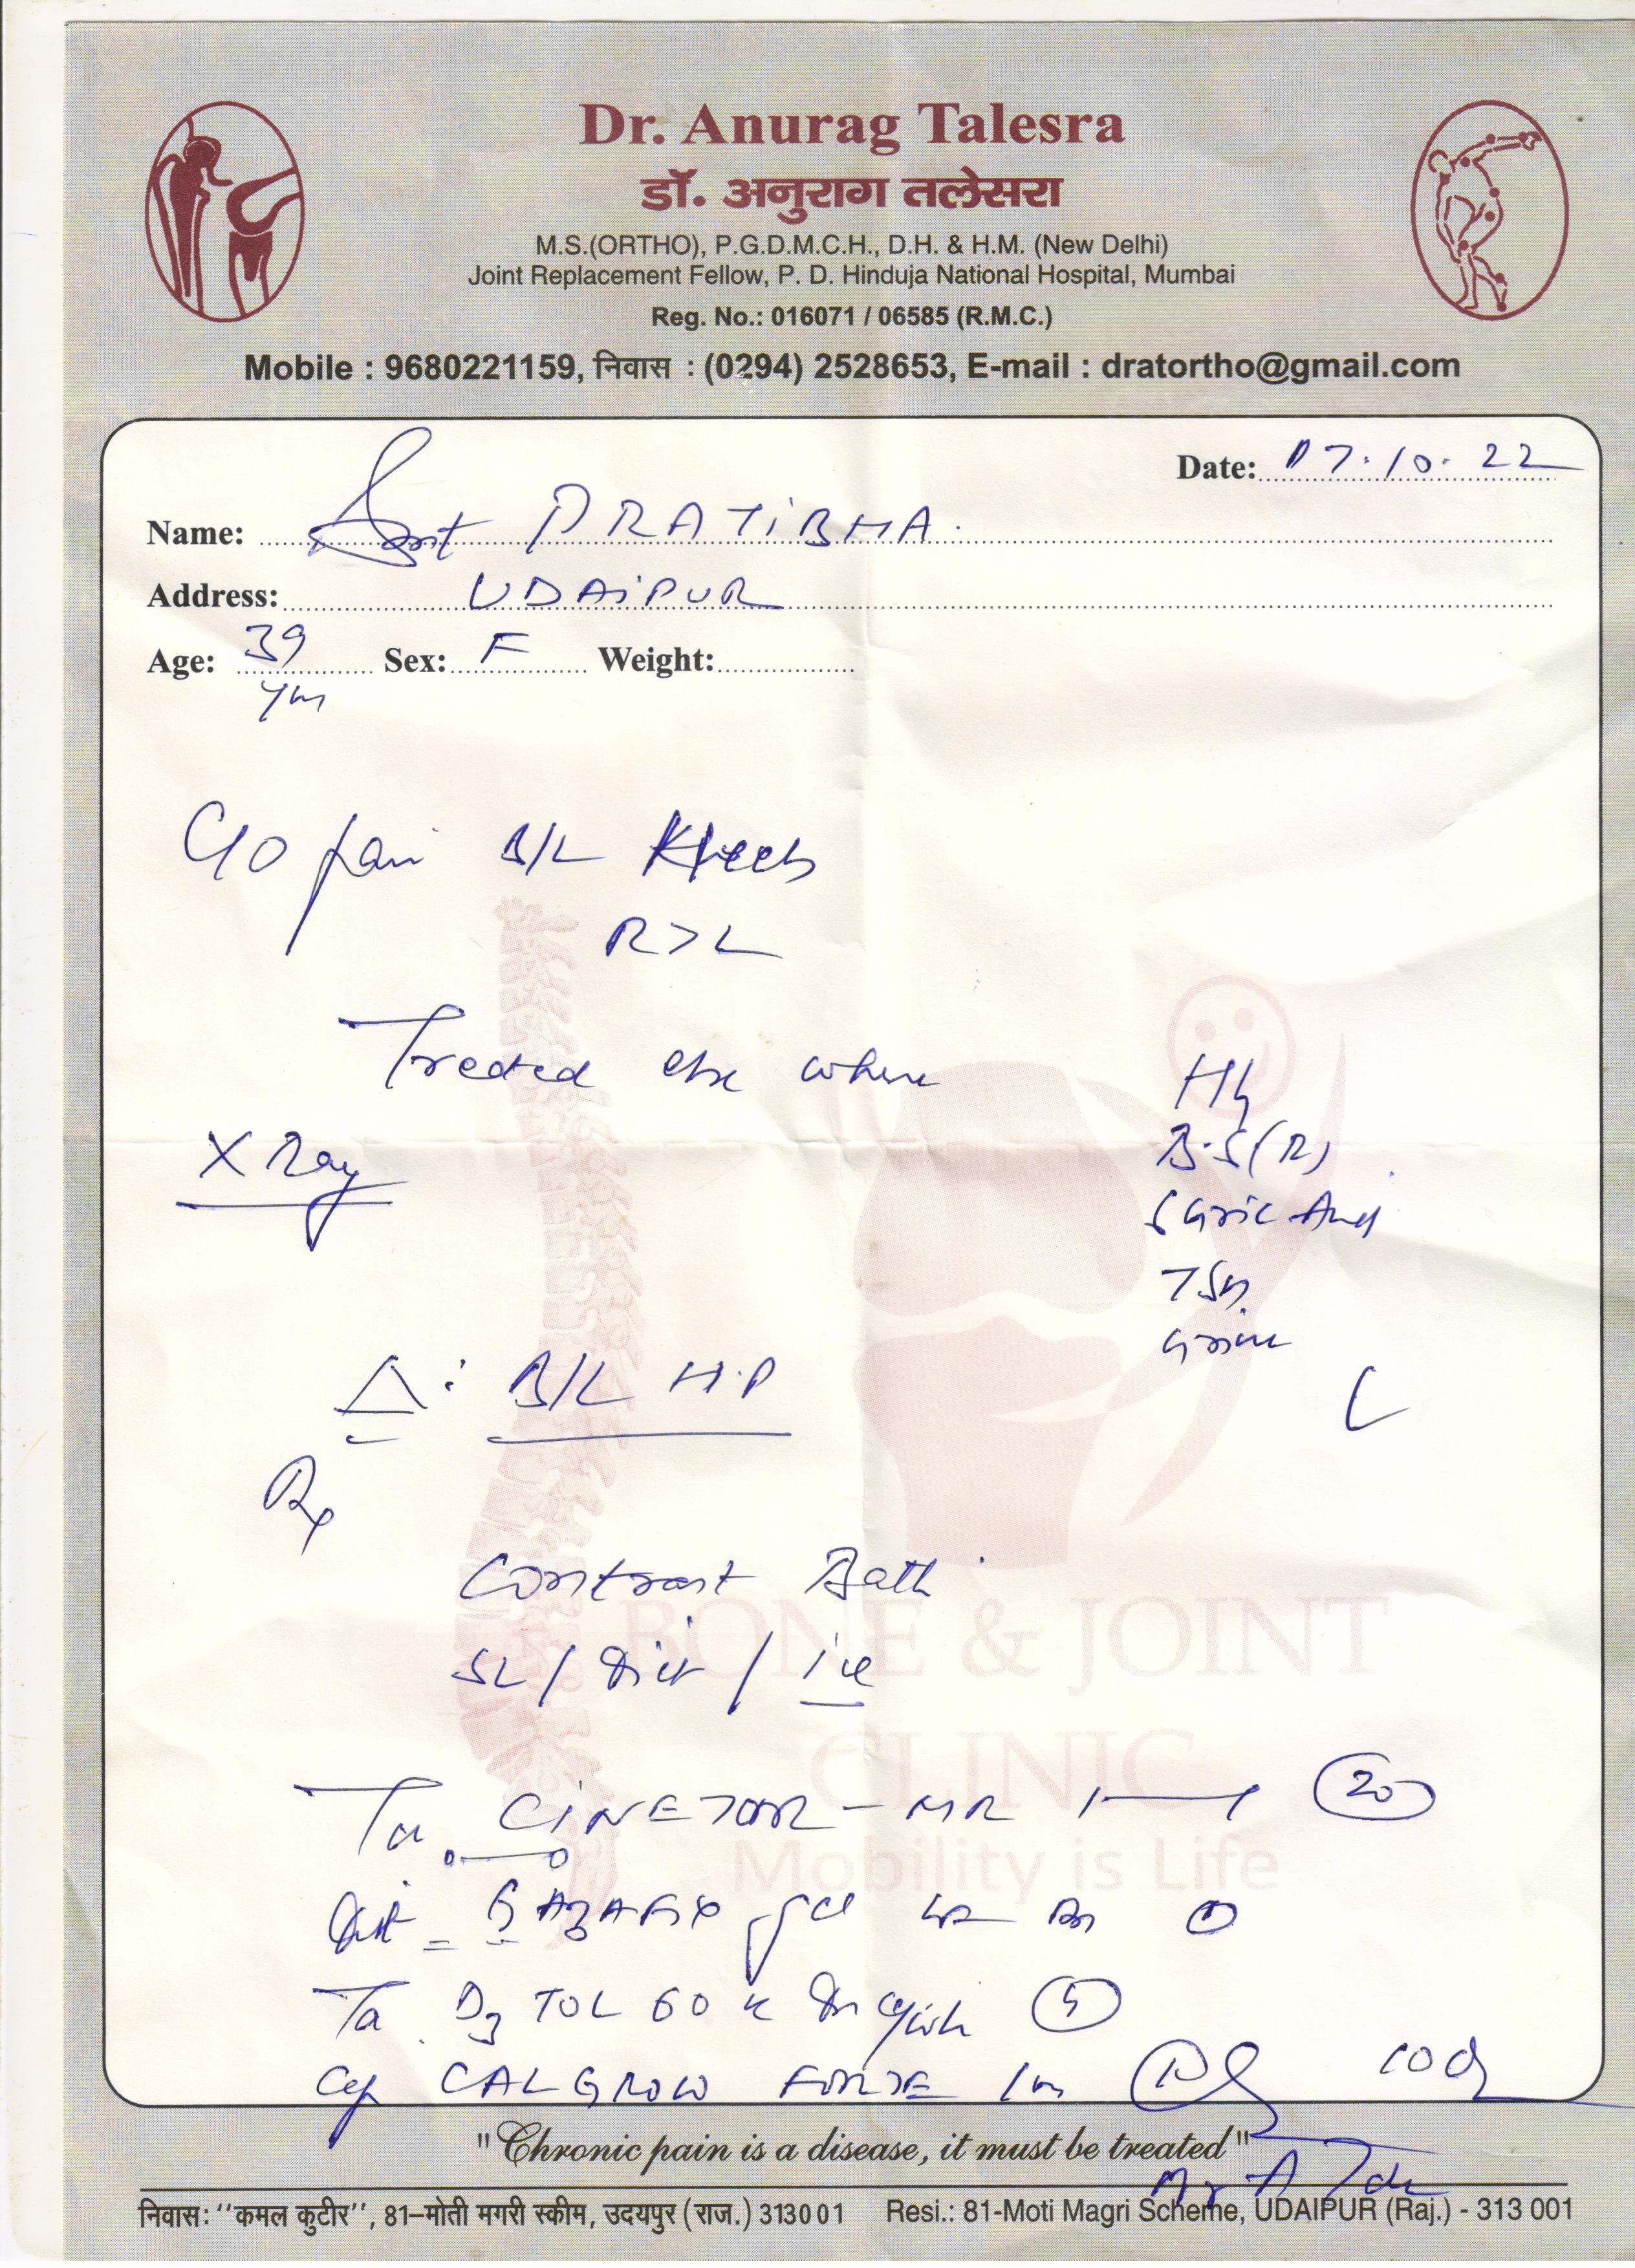 Dr. Anurag Talesra
डॉ. अनुराग तलेसरा
M.S.(ORTHO), P.G.D.M.C.H., D.H. & H.M. (New Delhi)
Joint Replacement Fellow, P. D. Hinduja National Hospital, Mumbai
Reg. No.: 016071 / 06585 (R.M.C.)
Mobile : 9680221159, निवास : (0294) 2528653, E-mail : dratortho@gmail.com
Date: 07.10.22
Name: Smt PRATIBHA.
Address: UDAiPUR
Age: 39 Sex: F Weight:
C/O pain B/L Heels
R>L
Treated else where
X Ray
Hb
B.S(R)
S Uric Acid
TSH
Urine
Δ: B/L H.P
Rx
Contrast Bath
SL / Diet / Ice
BONE & JOINT
CLINIC
Mobility is Life
Ta. CiNETOR - MR 20
gel
Ta. D3 TOL 60 K 5
Cap CALGROW FORTE
"Chronic pain is a disease, it must be treated"
निवास: ''कमल कुटीर'', 81–मोती मगरी स्कीम, उदयपुर (राज.) 313001 Resi.: 81-Moti Magri Scheme, UDAIPUR (Raj.) - 313 001